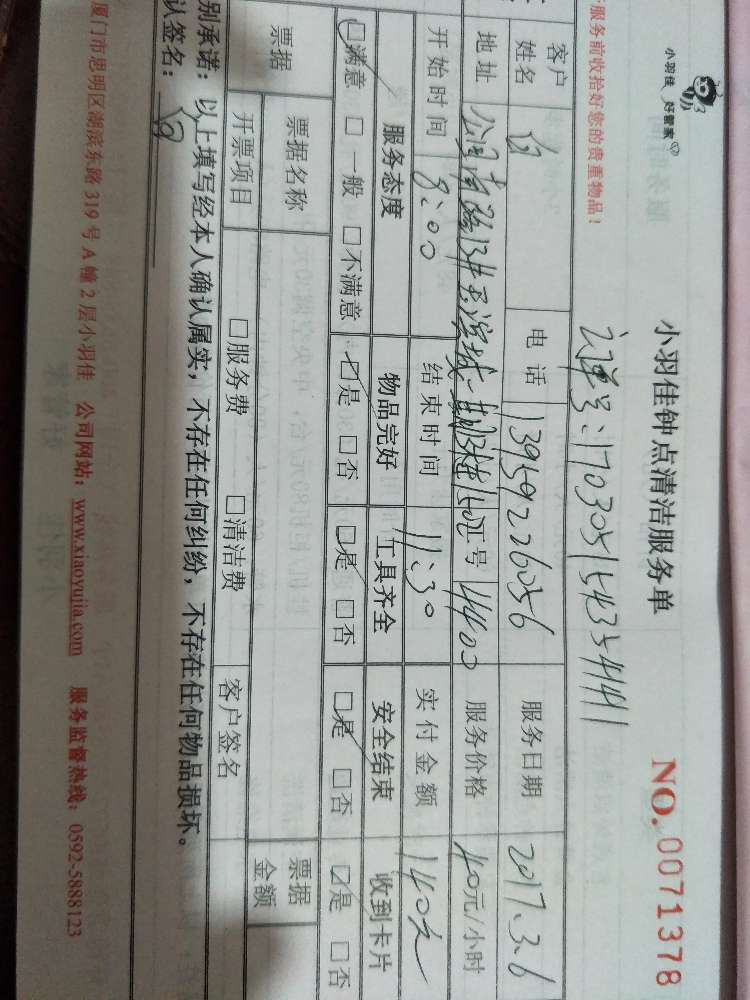 小羽佳 好管家
小羽佳钟点清洁服务单
NO. 0071378
服务前收拾好您的贵重物品！
订单号：17030515435541411
客户姓名 电话 13959226056 服务日期 2017.3.6
地址 证号 4400 服务价格 40元/小时
开始时间 8:00 结束时间 11:30 实付金额 140元
服务态度 物品完好 工具齐全 安全结束 收到卡片
☑满意 □一般 □不满意 ☑是 □否 ☑是 □否 ☑是 □否 ☑是 □否
票据 票据名称 □服务费 □清洁费 客户签名 票据金额
开票项目
别承诺：以上填写经本人确认属实，不存在任何纠纷，不存在任何物品损坏。
认签名：
厦门市思明区湖滨东路 319 号 A 幢 2 层小羽佳 公司网站：www.xiaoyujia.com 服务监督热线：0592-5888123